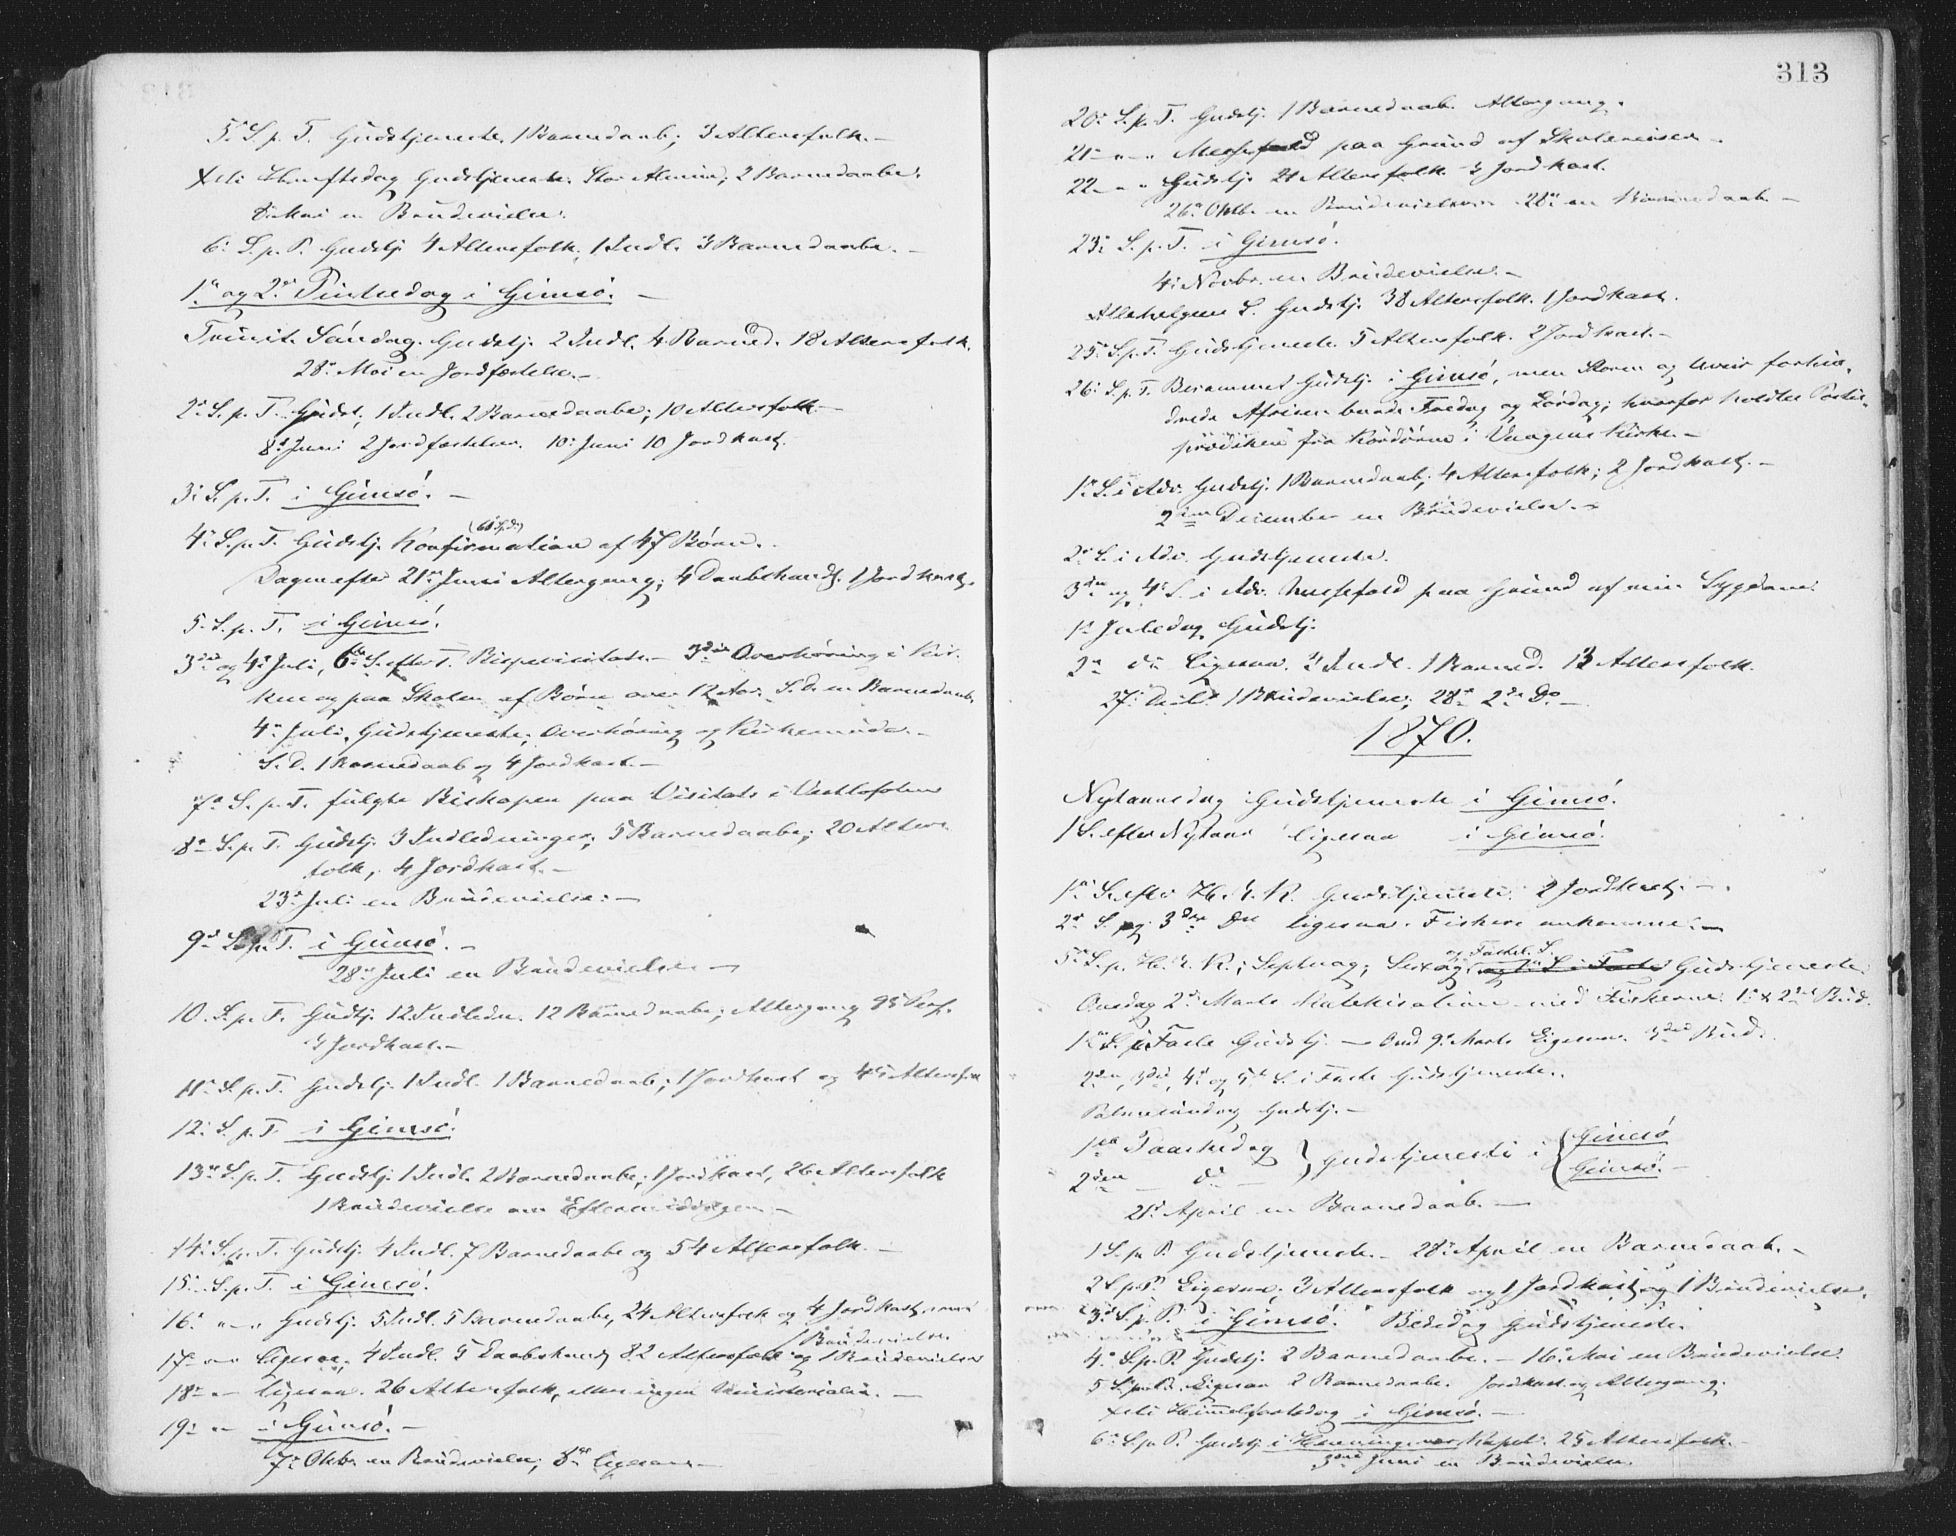 5. S. p. T. Gudstjeneste, 1 Barnedaab; 3 Altersfolk.–
Chr. Himmelfartsdag Gudstjeneste. Stor Almue; 2 Barnedaabe.
8. Mai en Brudevielse.
6. S. p. P. Gudstj. 4 Altersfolk, 1 Indl. 3 Barnedaabe.–
1ste og 2den Pintsedag i Gimsø.–
Trinit. Søndag. Gudstj. 2 Indl. 4 Barned. 18 Altersfolk.
28. Mai en Jordfæstelse.–
2. S. p. T. Gudst. 1 Indl. 2 Barnedaabe; 10 Altersfolk–
8. Juni 2 Jordfæstelser. 10. Juni 10 Jordkast.
3. S. p. T. i Gimsø.–
4. S. p. T. Gudstj. Konfirmation af 47 Børn.
Dagen efter 21. Juni Altergang; 4 Daabshandl. 1 Jordkast.
5. S. p. T. i Gimsø.
3die og 4. Juli, 6te S. efter T. Bispevisitats.– 3die Overhøring i Kir-
ken og paa Skolen af Børn over 12 Aar. S. D. en Barnedaab.
4. Juli, Gudstjeneste, Overhøring og Kirkemøde.–
S. D. 1 Barnedaab og 4 Jordkast.–
7. S. p. T. fulgte Biskopen paa Visitats i Vestlofoten
8. S. p. T. Gudstj. 3 Indledninger; 5 Barnedaabe; 20 Alters-
folk; 4 Jordkast.–
23. Juli en Brudevielse.–
9. S. p. T. i Gimsø.–
28. Juli en Brudevielse–
10. S. p. T. Gudstj. 12 Indledn. 12 Barnedaabe; Altergang 95 Pers.
3 Jordkast.–
11. S. p. T. Gudstj. 1 Indl. 1 Barnedaab; 1 Jordkast og 45 Altersfolk
12. S. p. T. i Gimsø.
13. S. p. T. Gudstj. 1 Indl. 2 Barnedaabe; 1 Jordkast, 26 Altersfolk
1 Brudevielse om Eftermiddagen–
14. S. p. T. Gudstj. 4 Indl. 7 Barnedaabe og 54 Altersfolk.–
15. S. p. T. i Gimsø.
16. – – Gudstj. 5 Indl. 5 Barnedaabe, 24 Altersfolk og 4 Jordkast
1 Brudevielse
17. – – ligesaa, 4 Indl. 5 Daabshandl 82 Altersfolk og 1 Brudevielse
18. – – ligesaa. 26 Altersfolk, ellers ingen Ministerialia.–
19. – – i Gimsø.–
7. Oktbr. en Brudevielse; 8. ligesaa–
313
20. S. p. T. Gudstj. 1 Barnedaab. Altergang.
21. – – Messefald paa Grund af Skolereiser–
22. – – Gudstj. 21 Altersfolk 3 Jordkast.
26. Oktbr. en Brudevielse 28. en Barnedaab–
23. S. p. T. i Gimsø.
4. Novbr. en Brudevielse.–
Allehelgens S. Gudstj. 38 Altersfolk. 1 Jordkast.
25. S. p. T. Gudstjeneste 5 Altersfolk. 2 Jordkast.–
26. S. p. T. Berammet Gudstj. i Gimsø, men Storm og Uveir forhin-
drede Afreisen baade Fredag og Lørdag; hvorfor holdtes
prædiken fra Kordøren i Vaagens Kirke.–
1. S. i Adv. Gudstj. 1 Barnedaab; 4 Altersfolk; 2 Jordkast.–
2den December en Brudevielse.–
2. S. i Adv. Gudstjeneste.
3die og 4. S. i Adv. Messefald paa Grund af min Sygdom.
1. Juledag Gudstj.
2. do Ligesaa. 3 Indl. 1 Barned. 13 Altersfolk.
27. Decbr. 1 Brudevielse; 28. 2de Do–
1870.
Nytaarsdag Gudstjeneste i Gimsø.
1 S. efter Nytaar ligesaa i Gimsø.
1. S. efter H. 3 K. Gudstjeneste. 2 Jordkast.–
2. S. og 3die do ligesaa. Fiskere ankomne.–
og Fastel. S.
5. S. p. H. 3 K.; Septuag; Sexag Gudstjeneste.
Onsdag 2. Marts Katekisation med Fiskerne. 1. & 2det Bud.
1. S. i Faste Gudstj.– Onsd 9. Marts Ligesaa. 3die Bud.
2den, 3die, 4. og 5. S. i Faste Gudstjeneste.
Palmesøndag Gudstj.–
1ste Paaskedag } Gudstjeneste i { Gimsø
2den – do – Gimsø.–
21. April en Barnedaab.–
1 S. p. P. Gudstjeneste.– 28. April en Barnedaab.–
2 S. p. P. Ligesaa; 3 Altersfolk og 1 Jordkast og 1 Brudevielse.
3. S. p. P. i Gimsø. Bededag Gudstjeneste.
4. S. p. P. Gudstj. 2 Barnedaabe.– 16. Mai en Brudevielse
5 S. p. P. Ligesaa 2 Barnedaabe. Jordkast og Altergang.
Chr. Himmelfartsdag i Gimsø.–
6. S. p. P. Gudstj. i Henningsvær Kapel. 25 Altersfolk.–
3die Juni en Brudevielse.